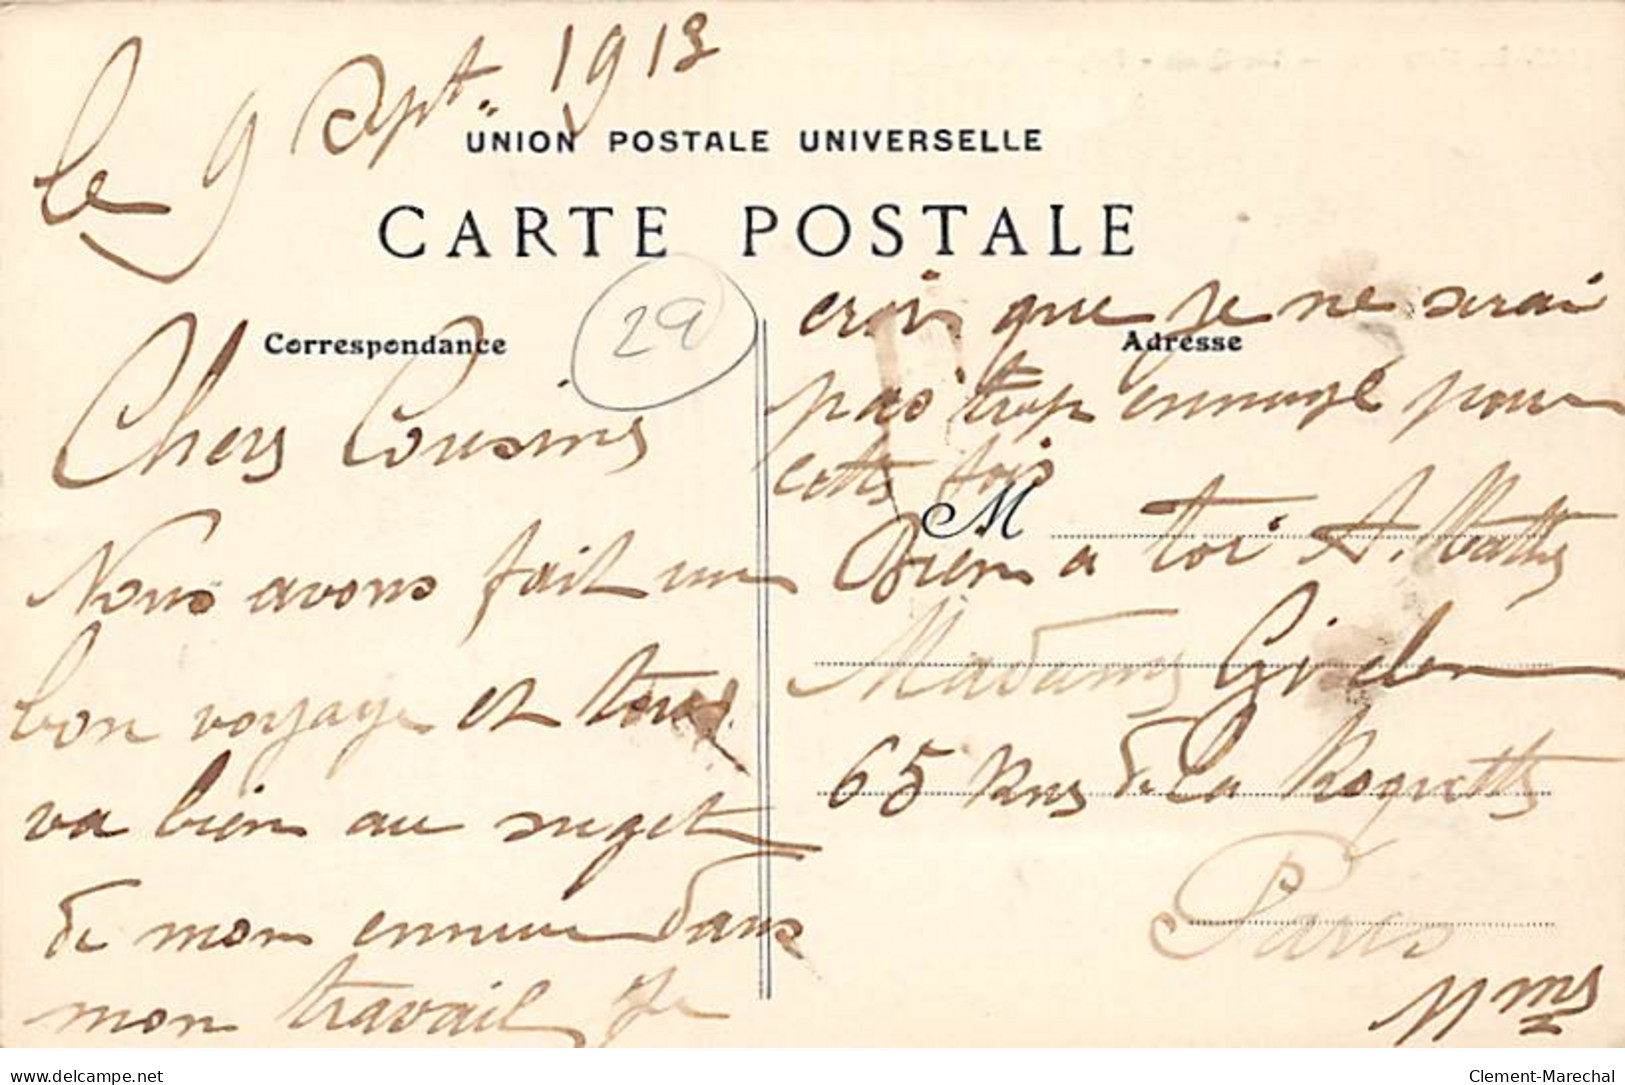 le 9 Sept. 1913
UNION POSTALE UNIVERSELLE
CARTE POSTALE
Correspondance
29
Adresse
Chers Cousins
Nous avons fait un
bon voyage et tous
va bien au suget
de mon ennui dans
mon travail Je
crois que je ne serai
pas trop ennuyé pour
cette fois
M
Bien a toi A.
Madame
65 Rue de la Roquette
Paris
11me
Clement-Marechal
delcampe.net